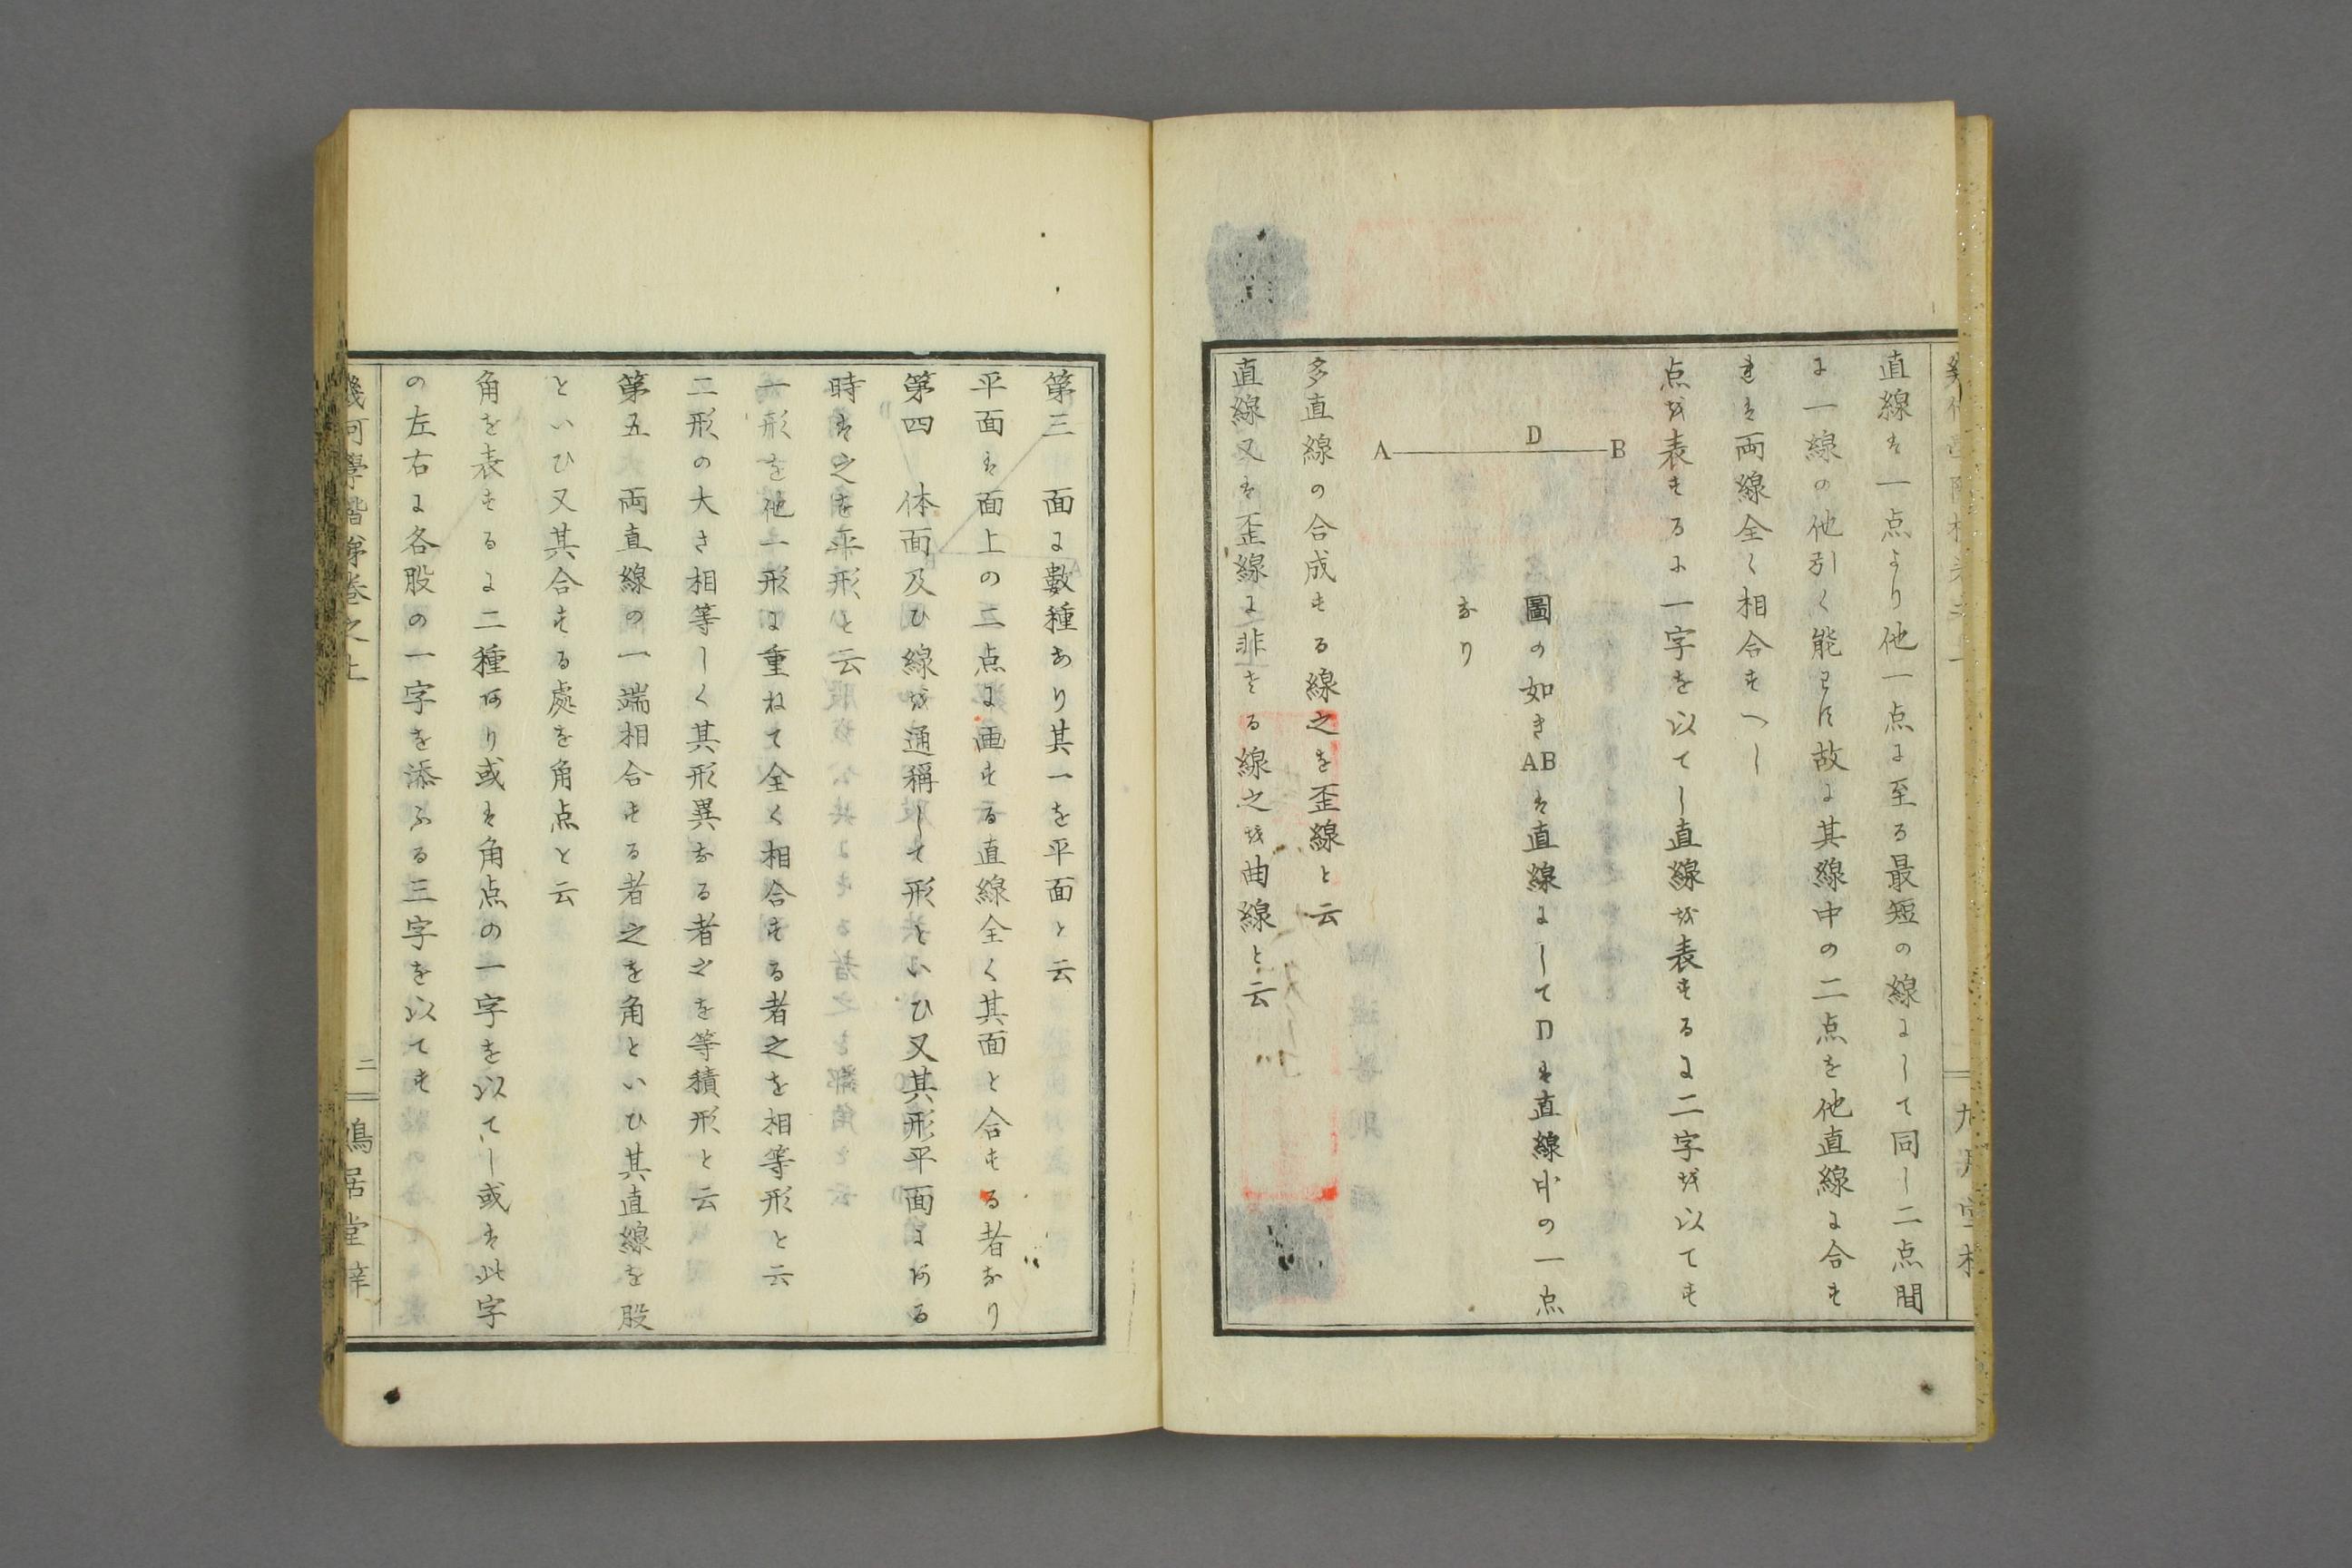 直線は一点より他一点に至る最短の線にして同し二点間
に一線の他引く能はす故に其線中の二点を他直線に合も
きは両線全く相合すへし
点を表するに一字を以てし直線を表するに二字を以てす
A D B
圖の如きABは直線にしてDは直線中の一点
なり
多直線の合成する線之を歪線と云
直線又は歪線に非さる線之を曲線と云
第三 面に數種あり其一を平面と云
平面は面上の二点に画する直線全く其面と合する者なり
第四 体面及ひ線を通稱して形といひ又其形平面にある
時は之を平形と云
一形を他一形に重ねて全く相合する者之を相等形と云
二形の大き相等しく其形異なる者之を等積形と云
第五 両直線の一端相合する者之を角といひ其直線を股
といひ又其合する處を角点と云
角を表するに二種あり或は角点の一字を以てし或は此字
の左右に各股の一字を添ふる三字を以てす
幾何學階梯卷之上
二
鳩居堂梓